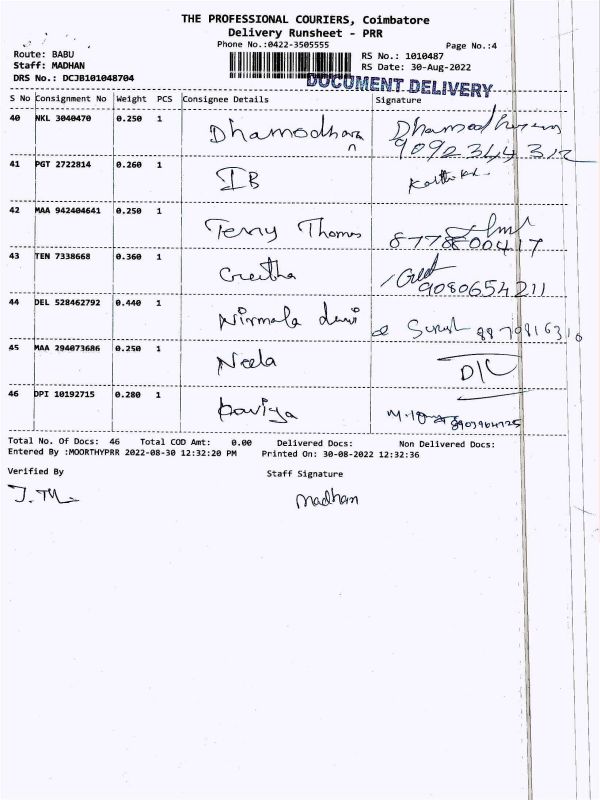 THE PROFESSIONAL COURIERS, Coimbatore
Delivery Runsheet - PRR
Phone No.:0422-3505555 Page No.:4
Route: BABU RS No.: 1010487
Staff: MADHAN RS Date: 30-Aug-2022
DRS No.: DCJB101048704 DOCUMENT DELIVERY
S No Consignment No Weight PCS Consignee Details Signature
40 NKL 3040470 0.250 1 Dhamodharan Dhamodharan
9092344312
41 PGT 2722814 0.260 1 IB
42 MAA 942404641 0.250 1 Terry Thomas
8778600417
43 TEN 7338668 0.360 1 Geetha
9080654211
44 DEL 528462792 0.440 1 Nirmala devi Suresh 8870816310
45 MAA 294073686 0.250 1 Neela D/C
46 DPI 10192715 0.280 1 Kaviya 8903964725
Total No. Of Docs: 46 Total COD Amt: 0.00 Delivered Docs: Non Delivered Docs:
Entered By :MOORTHYPRR 2022-08-30 12:32:20 PM Printed On: 30-08-2022 12:32:36
Verified By Staff Signature
Madhan